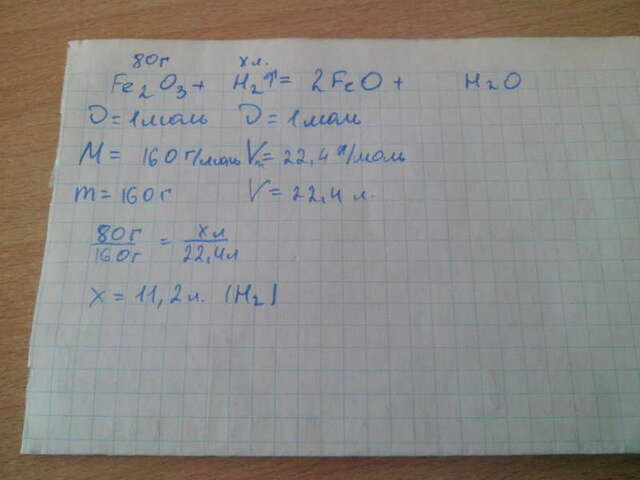 80г хл.
Fe2O3 + H2↑ = 2FeO + H2O
υ = 1моль υ = 1моль
M = 160 г/моль Vm = 22,4 л/моль
m = 160г V = 22,4 л.
80г/160г = хл/22,4л
x = 11,2л. (H2)